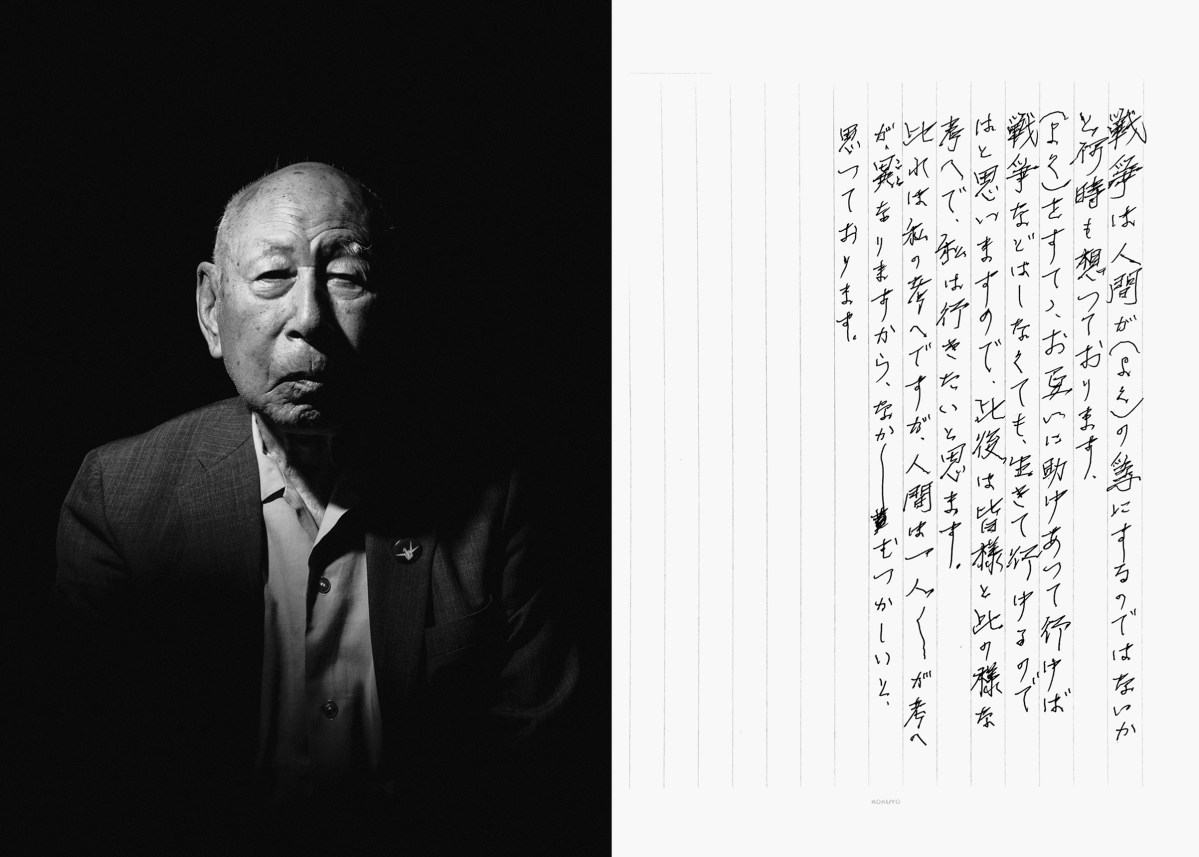 戦争は人間が(よく)の為にするのではないか
と何時も想っております、
(よく)をすて、お互いに助けあって行けば
戦争などはしなくても、生きて行けるので
はと思いますので、此後は皆様と此の様な
考へで、私は行きたいと思ます。
此れは私の考へですが、人間は一人〳〵が考へ
が、異なりますから、なか〳〵むつかしいと、
こと
思っております。
KOKUYO